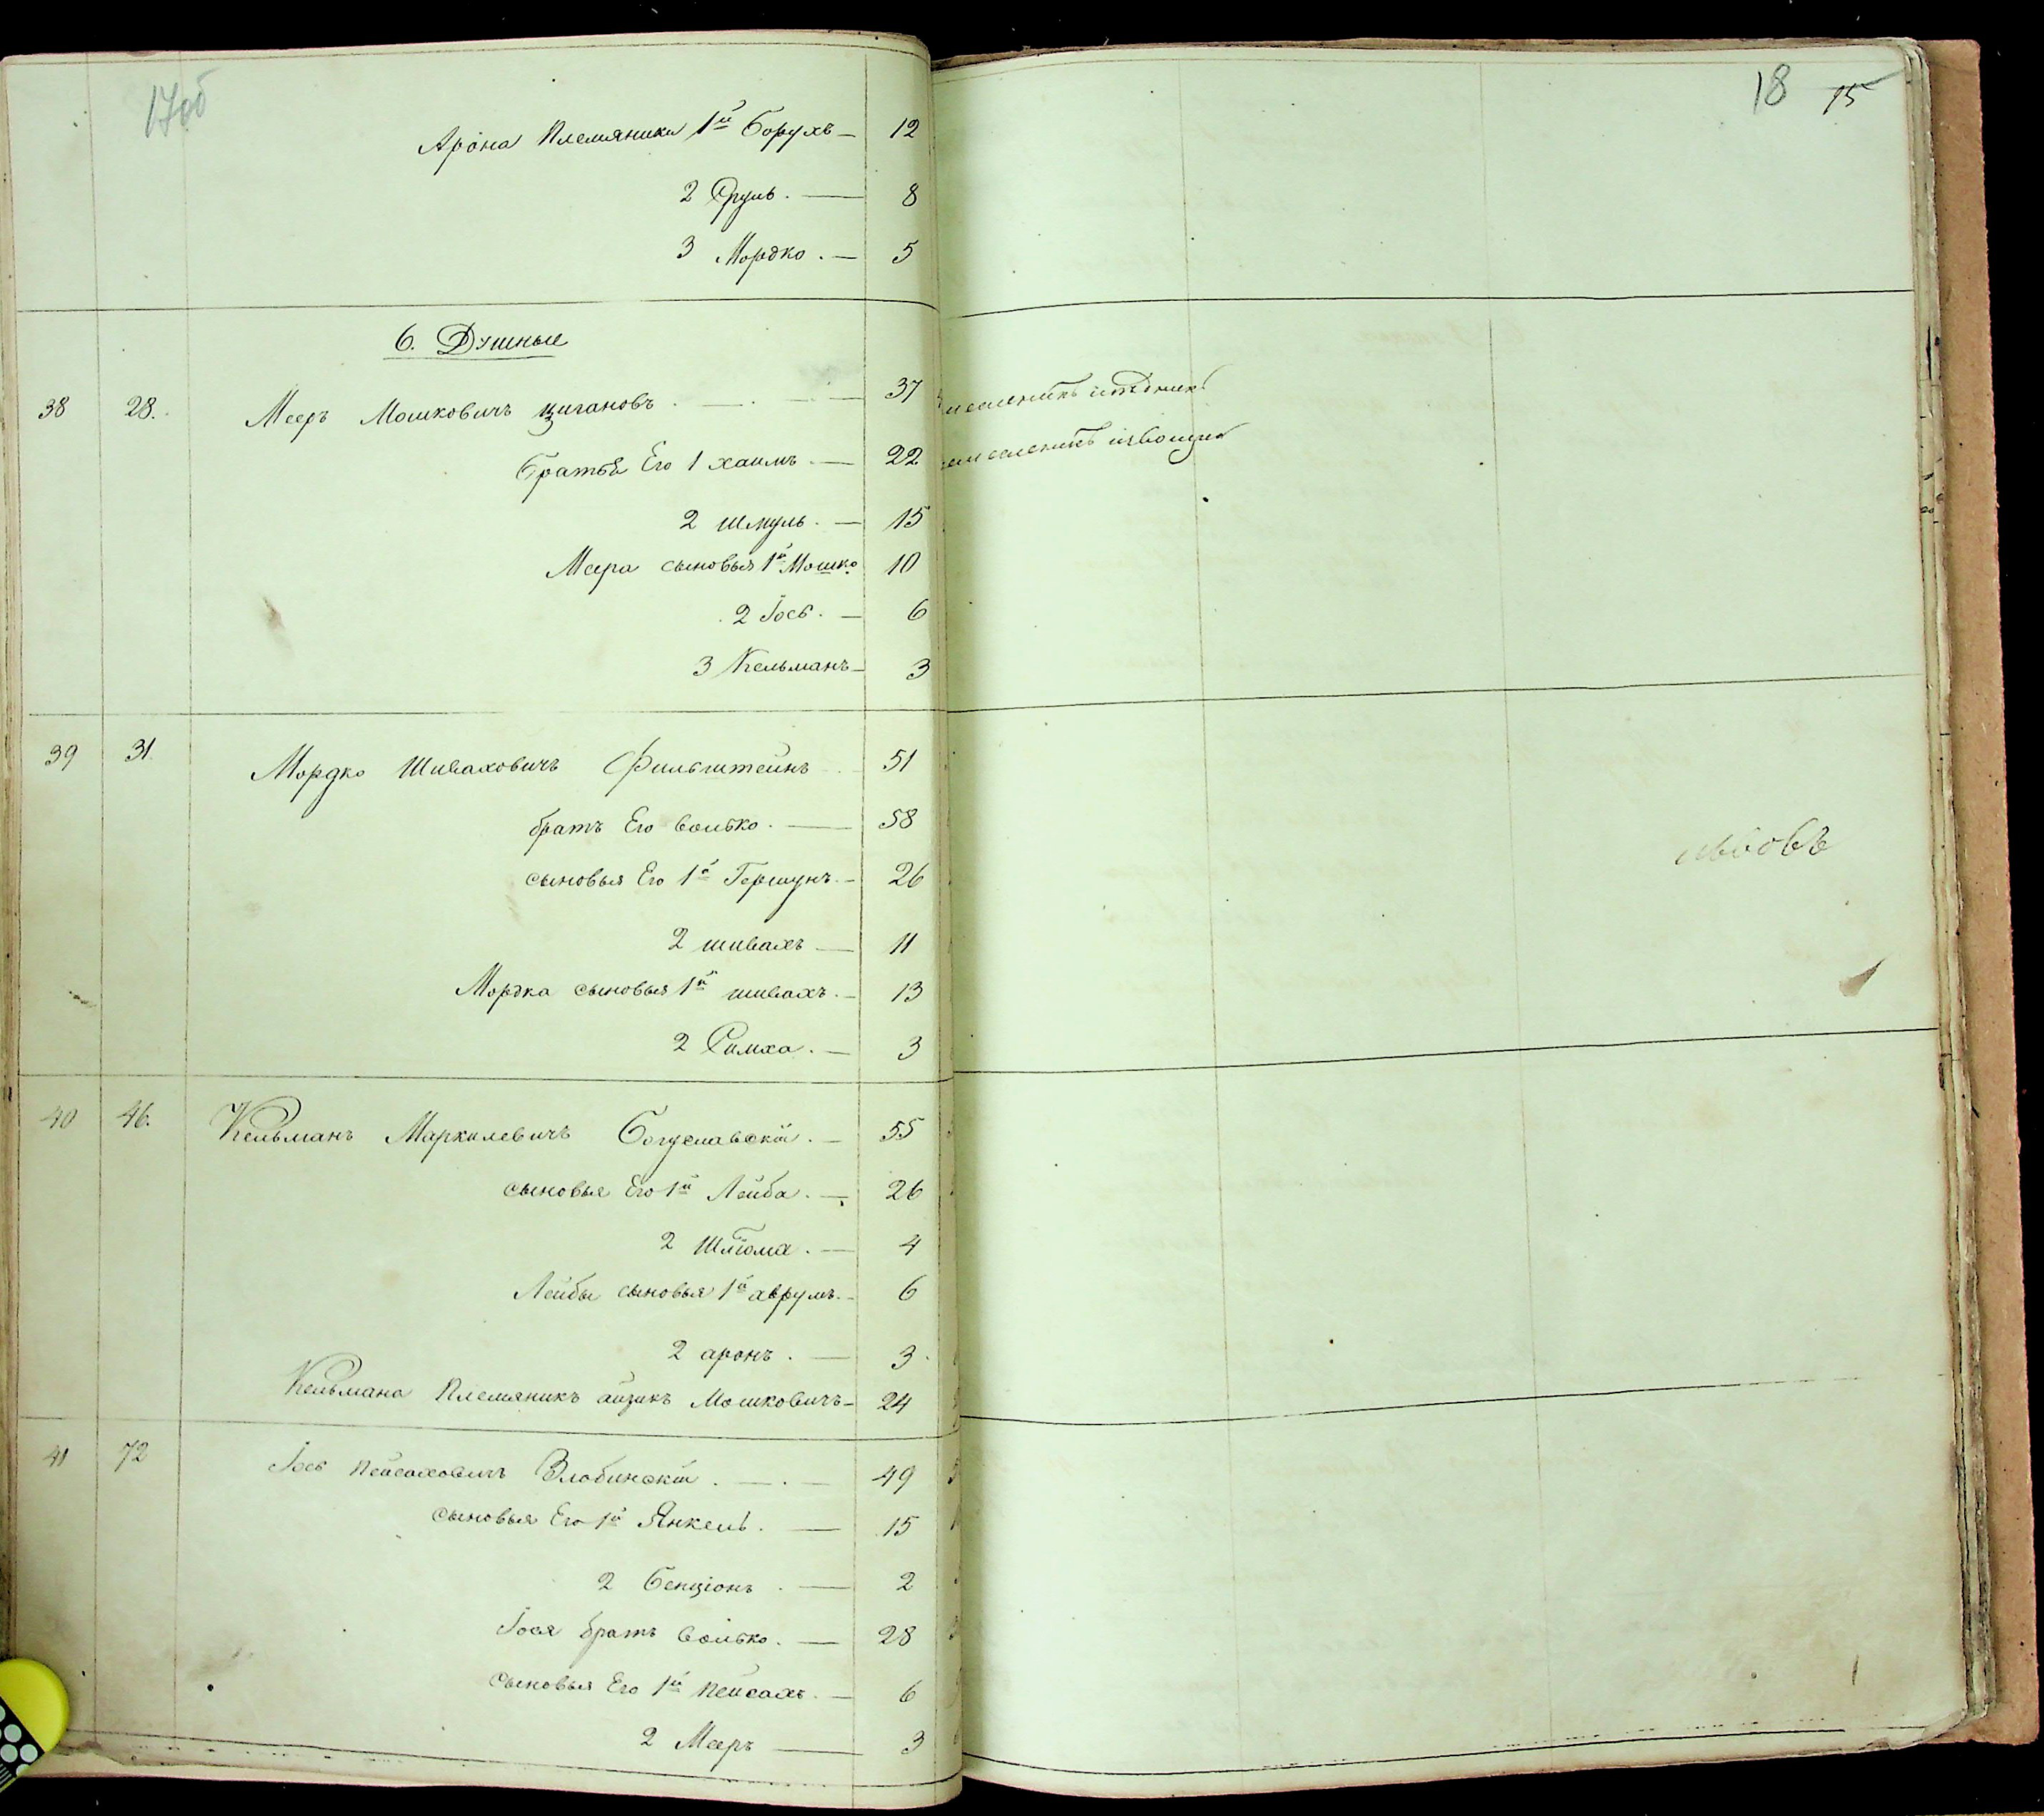 17об
Арона Племяники 1й Борухъ — 12
2 Сруль. — 8
3 Мордко. — 5
6. Душные
38 28. Мееръ Мошковичъ Цигановъ. — 37
братья Его 1 хаимъ. — 22
2 шмуль. — 15
Меера сыновья 1й Мошко 10
2 Іось. — 6
3 Кельманъ — 3
39 31 Мордко Шиваховичъ Фильштейнъ 51
братъ Его волько. — 58
сыновья Его 1й Гершунъ. — 26
2 шивахъ — 11
Мордка сыновья 1й шивахъ. — 13
2 Симха. — 3
40 46. Кельманъ Маркилевичъ Богуславскій. — 55
сыновья Его 1й Лейба. — 26
2 Шліома. — 4
Лейбы сыновья 1й аврумъ. — 6
2 аронъ. — 3
Кельмана Племяникъ айзикъ Мошковичъ — 24
41 72 Іось пейсаховичъ Злобинскій. — 49
сыновья Его 1й Янкель. — 15
2 Бенціонъ. — 2
Іося братъ волько. — 28
сыновья Его 1й пейсахъ. — 6
2 Мееръ — 3
18 15